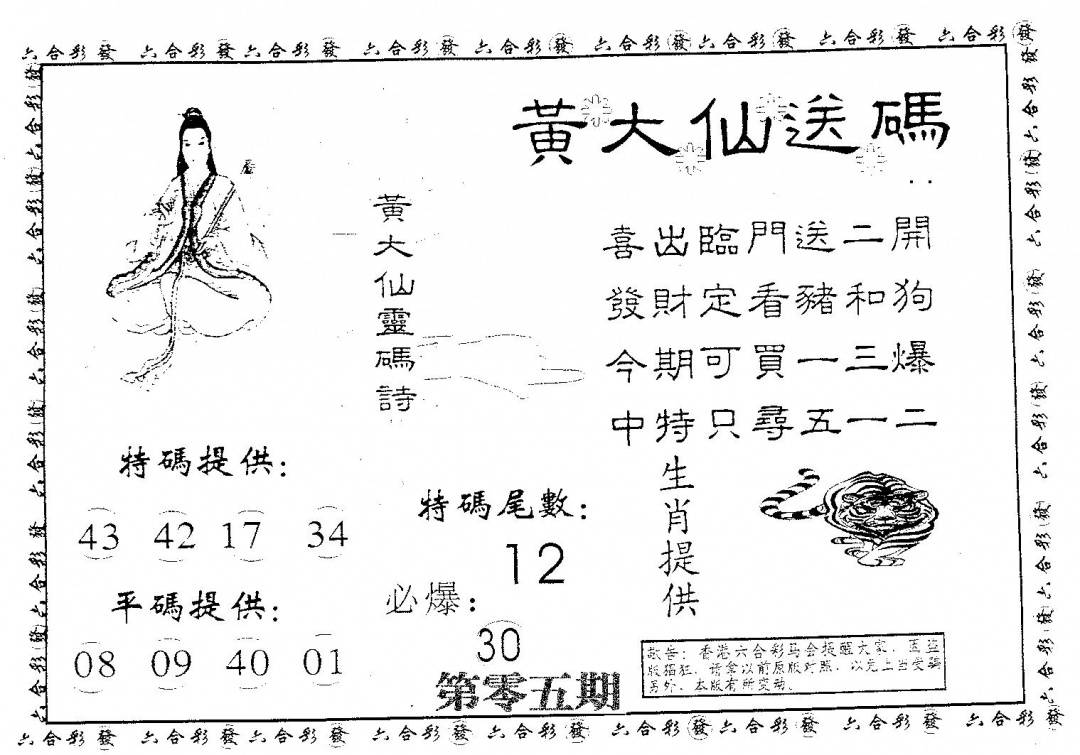 六合彩發 六合彩發六合彩發 六合彩發 六合彩發 六合彩發六合彩發 六合彩發 六合彩發
黃大仙送碼
黃大仙靈碼詩
喜出臨門送二開
發財定看豬和狗
今期可買一三爆
中特只尋五一二
特碼提供：
43 42 17 34
平碼提供：
08 09 40 01
特碼尾數：
12
必爆：
30
第零五期
生肖提供
敬告：香港六合彩马会提醒大家，因盗
版猖狂，请拿以前原版对照，以免上当受骗
另外，本版有所变动。
六合彩發 六合彩發六合彩發 六合彩發 六合彩發 六合彩發六合彩發 六合彩發 六合彩發